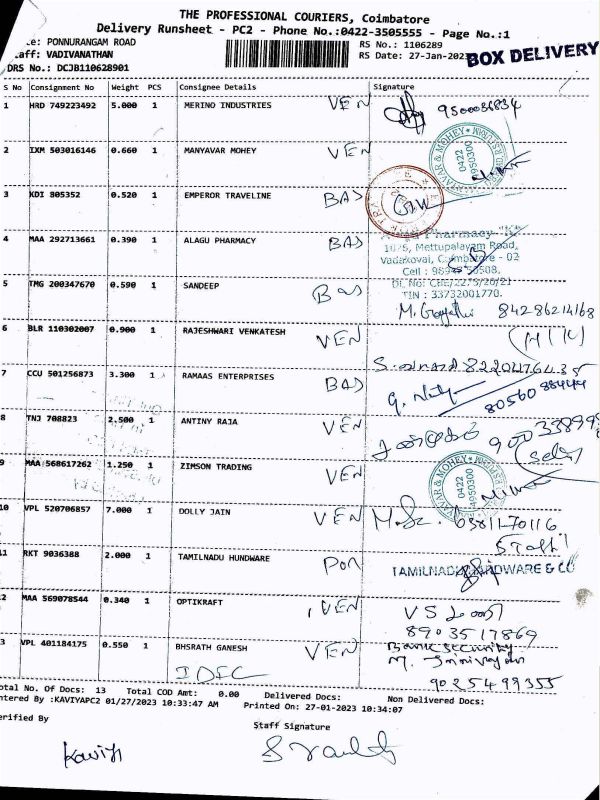 THE PROFESSIONAL COURIERS, Coimbatore
Delivery Runsheet - PC2 - Phone No.:0422-3505555 - Page No.:1
te: PONNURANGAM ROAD RS No.: 1106289
taff: VADIVANATHAN RS Date: 27-Jan-202 BOX DELIVERY
DRS No.: DCJB110628901
S No Consignment No Weight PCS Consignee Details Signature
1 HRD 749223492 5.000 1 MERINO INDUSTRIES VEN 9500036834
2 IXM 503016146 0.660 1 MANYAVAR MOHEY VEN
MANYAVAR & MOHEY 0422 4950300
3 KDI 805352 0.520 1 EMPEROR TRAVELINE BAS
4 MAA 292713661 0.390 1 ALAGU PHARMACY BAS
Pharmacy "K"
1075, Mettupalayam Road,
Vadakovai, Coimbatore - 02
Cell :
TIN : 33732001770.
5 TMG 200347670 0.590 1 SANDEEP BaS M. Gayathri 84286214168
6 BLR 110302007 0.900 1 RAJESHWARI VENKATESH VEN
7 CCU 501256873 3.300 1 RAMAAS ENTERPRISES BAS 80560 88444
8 TNJ 708823 2.500 1 ANTINY RAJA VEN
9 MAA 568617262 1.250 1 ZIMSON TRADING VEN
MANYAVAR & MOHEY 0422 4950300
10 VPL 520706857 7.000 1 DOLLY JAIN VEN 6381170116
11 RKT 9036388 2.000 1 TAMILNADU HUNDWARE Pon TAMILNADU HARDWARE & CO
2 MAA 569078544 0.340 1 OPTIKRAFT VEN
8903517869
3 VPL 401184175 0.550 1 BHSRATH GANESH VEN Bank Security
IDFC M. Srinivasan
9025499355
otal No. Of Docs: 13 Total COD Amt: 0.00 Delivered Docs: Non Delivered Docs:
ntered By :KAVIYAPC2 01/27/2023 10:33:47 AM Printed On: 27-01-2023 10:34:07
erified By Staff Signature
Kaviya